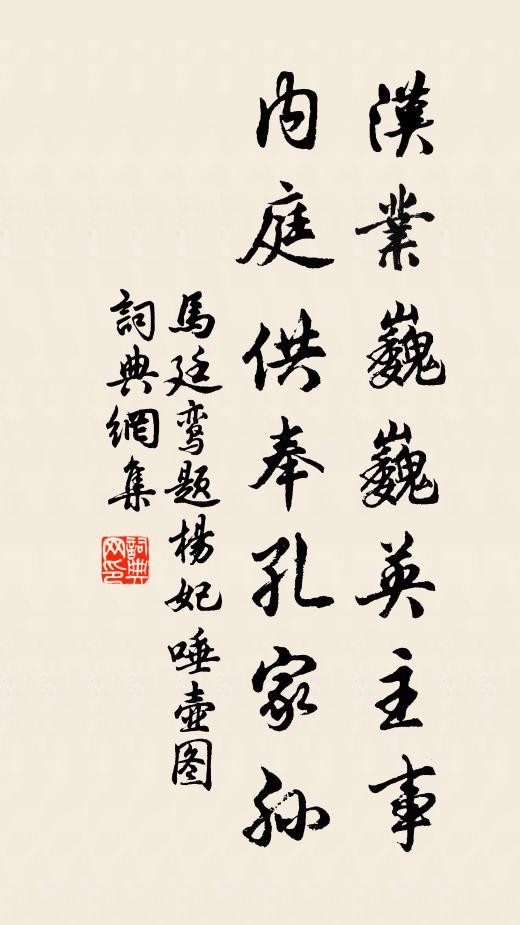 漢業巍巍英主事
内庭供奉孔家孙
馬廷鸾題楊妃唾壺图
詞典網集
詞典网印